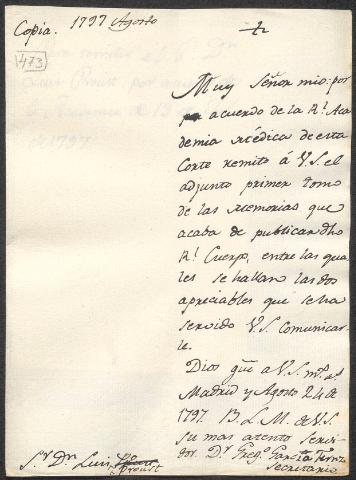 Copia. 1797 Agosto
473
Muy Señor mio: por
acuerdo de la Rl. Aca
demia Médica de esta
Corte remito á V.S. el
adjunto primer tomo
de las Memorias que
acaba de publicar dho
Rl. Cuerpo, entre las qua
les se hallan las dos
apreciables que se ha
servido V.S. Comunicar
le.
Dios gue a V.S. ms. as.
Madrid y Agosto 24 de
1797. B. L. M. de V.S.
su mas atento servi
dor Dr. Grego. Garcia Fernz
Secretario
Sr. Dn. Luis Proust